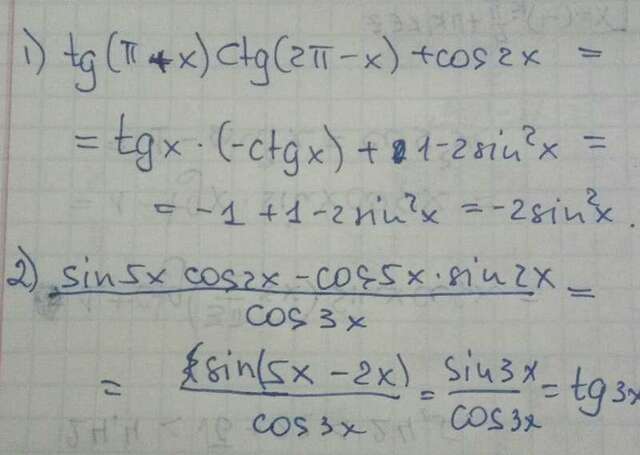 1) tg(π+x) ctg(2π-x) + cos2x =
= tgx · (-ctgx) + 1-2sin²x =
= -1 + 1-2sin²x = -2sin²x.
2) sin5x cos2x - cos5x · sin2x / cos3x =
= sin(5x - 2x) / cos3x = sin3x / cos3x = tg3x